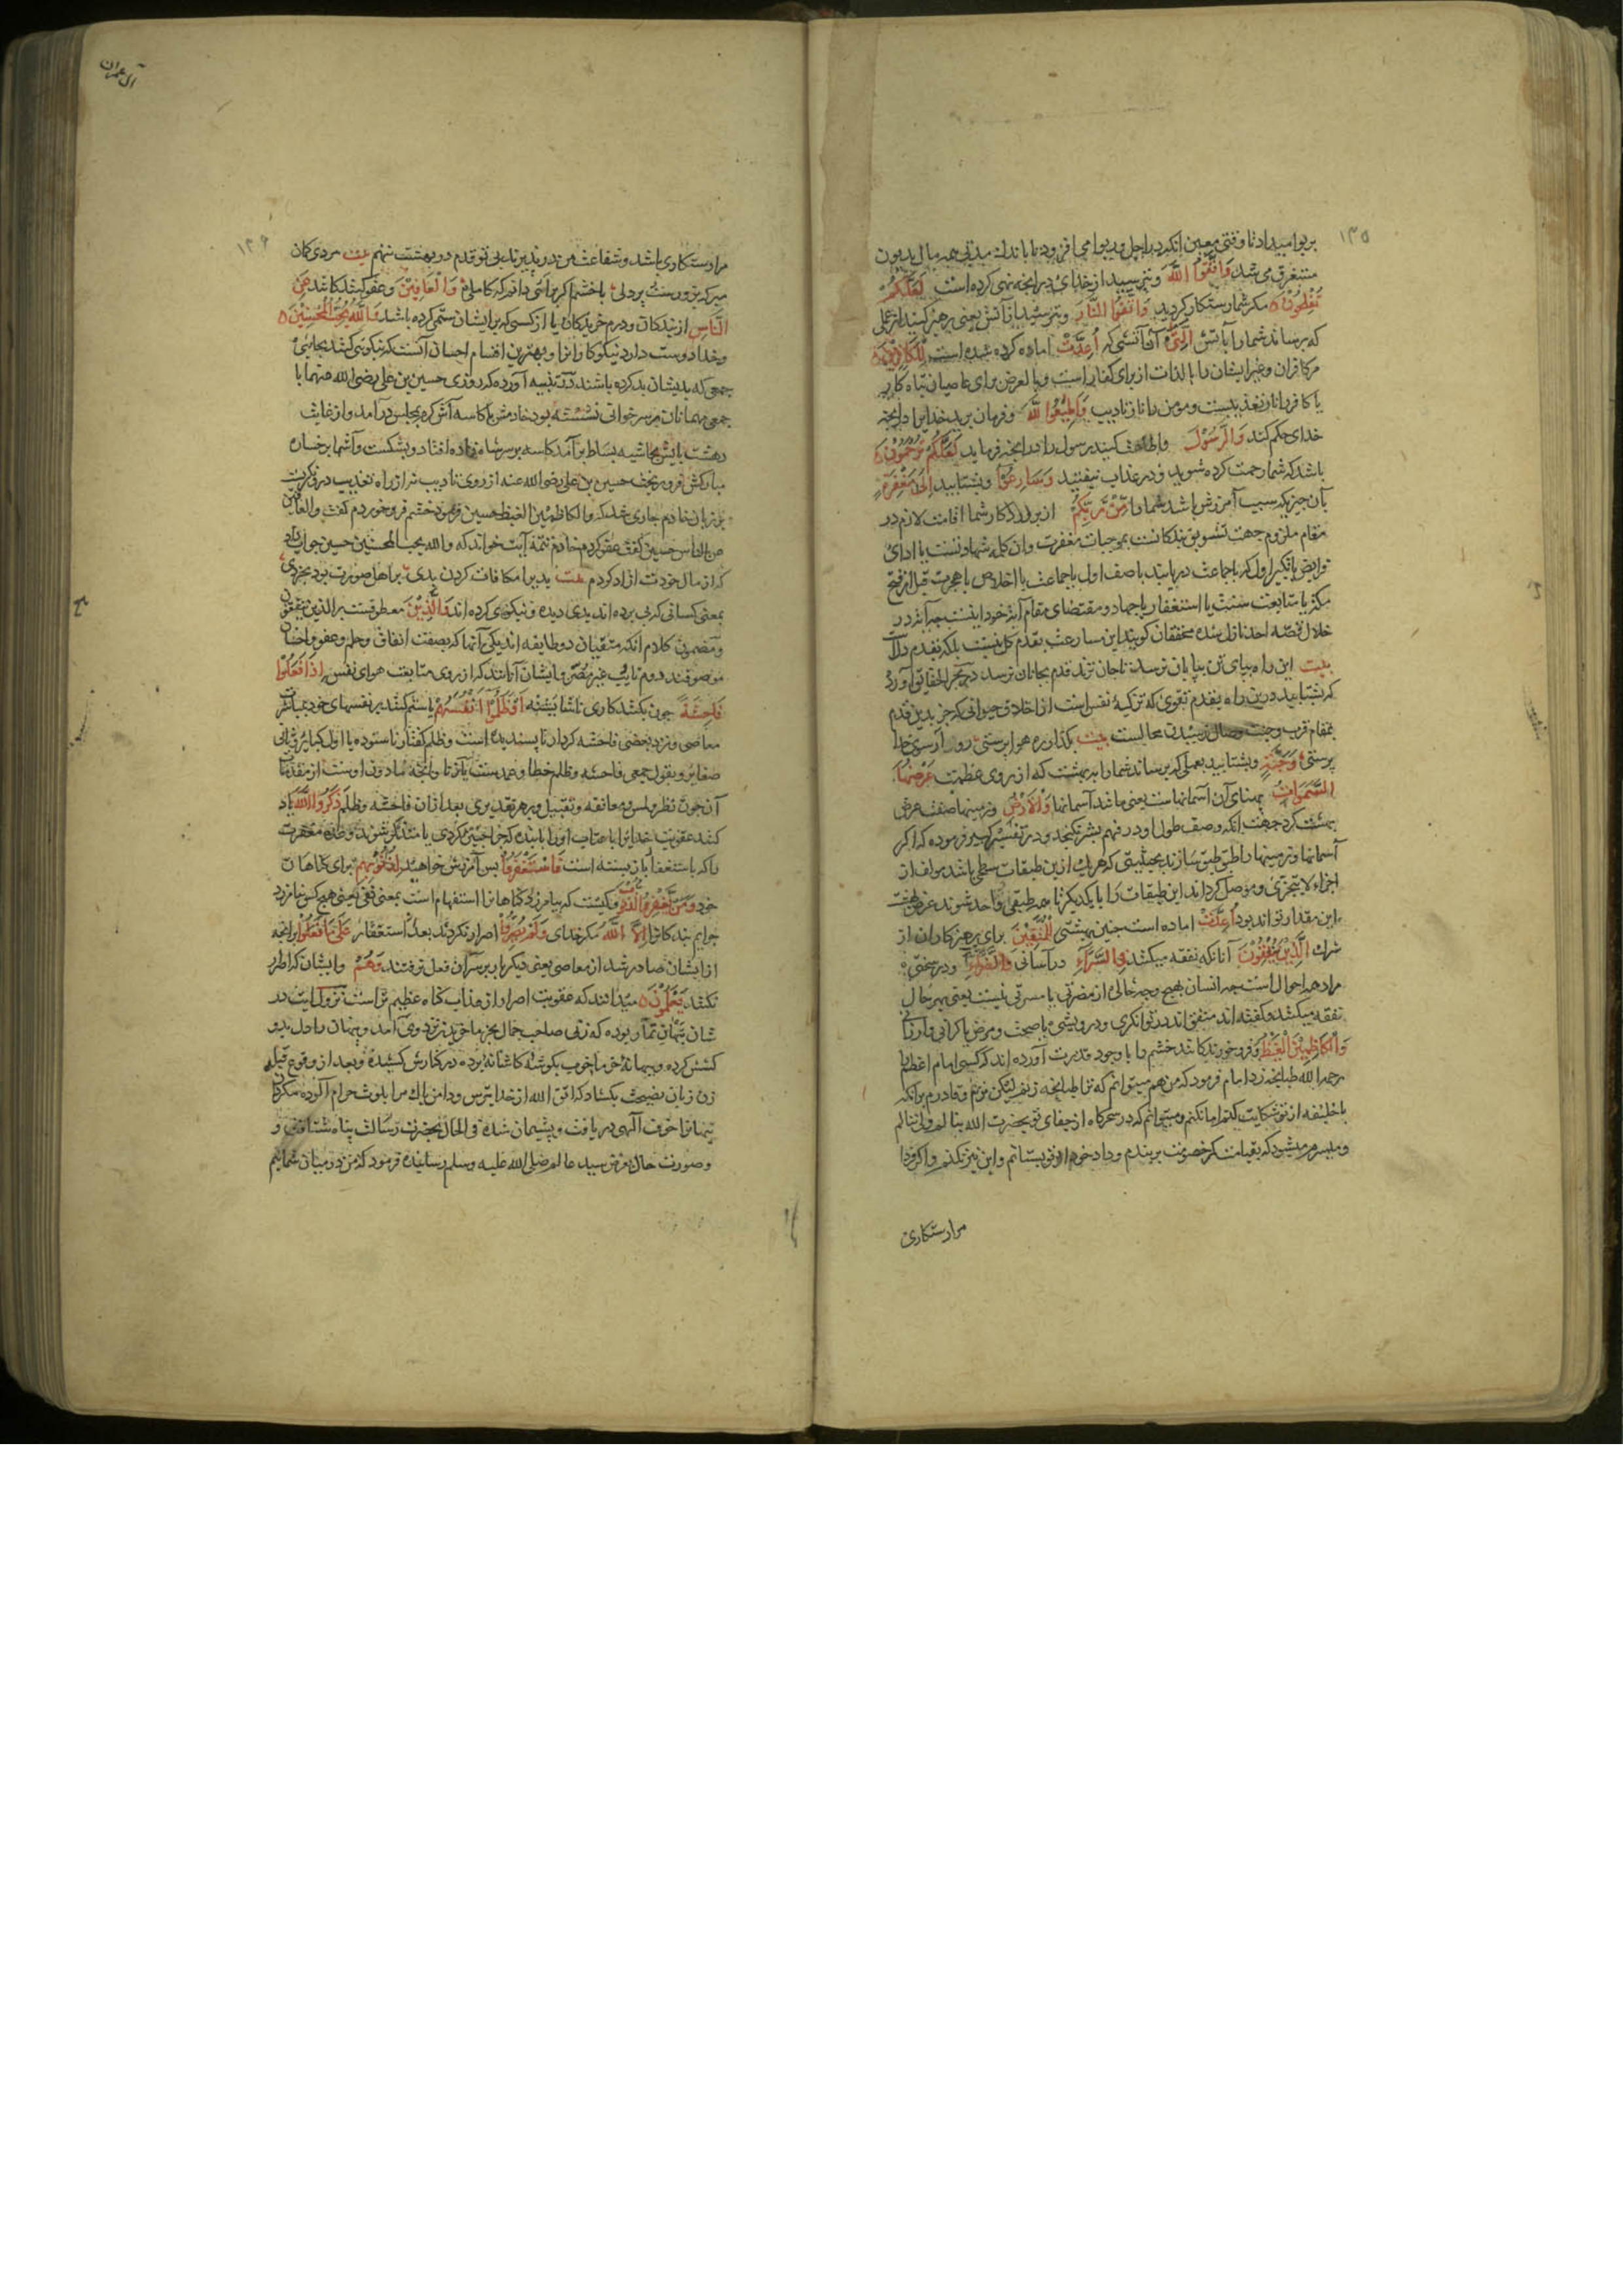 ۱۳۵
بربوا میدادند تا وقتی معین انکه در اجل و ربوا می افزودند تا باندك مدتی همه مال مدیون
مستغرق می شد وَاتَّقُوا اللَّهَ و بترسید از خدای در انچه نهی کرده است لَعَلَّكُمْ
تُفْلِحُوْنَ مکر شما رستکار کردید وَاتَّقُوا النَّارَ و بترسید از آتش یعنی پرهیز کنید از عملی
که برساند شما را بآتش الَّتِیْ آن آتشی که أُعِدَّتْ اماده کرده شده است لِلْكَافِرِيْنَ
مر کافران و غیر ایشان را بالذات از برای کفار است و بالعرض برای عاصیان تباه کار
یا کافر را نار تعذیبست و مومن را نار تادیب وَأَطِيْعُوا اللَّهَ و فرمان برید خدایرا در انچه
خدای حکم کند وَالرَّسُوْلَ و اطاعت کنید رسول را در انچه فرماید لَعَلَّكُمْ تُرْحَمُوْنَ
باشد که شما رحمت کرده شوید و در عذاب نیفتید وَسَارِعُوْا و بشتابید إِلَى مَغْفِرَةٍ
بآن چیز که سبب آمرزش باشد شما را مِّنْ رَّبِّكُمْ از پروردکار شما اقامت لازم در
مقام ملزوم جهت تشویق بندکانست بموجبات مغفرت و ان کلمه شهادتست یا ادای
فرایض یا تکبیر اول که باجماعت دریابند یا صف اول یا جماعت یا اخلاص یا هجرت قبل از فتح
مکه یا متابعت سنت یا استغفار یا جهاد و مقتضای مقام آیه خود اینست چه آیه در
خلال قصه احد نازل شده محققان کویند این مسارعت بقدم کل نیست بلکه بقدم دلست
بیت این راه بپای تن بپایان نرسد تا جان نزند قدم بجانان نرسد در بحر الحقایق آورده
که بشتابید درین راه بقدم تقوی که تزکیهٔ نفس است از اخلاق حیوانی که جز بدین قدم
بمقام قرب و جنت وصال رسیدن محالست بیت
پرستی وَجَنَّةٍ و بشتابید بعملی که برساند شما را به بهشت که از روی عظمت عَرْضُهَا
السَّمٰوَاتُ پهنای آن آسمانهاست یعنی مانند آسمانها وَالْأَرْضُ و زمینها صفت عرض
بهشت کرد جهت انکه وصف طول او در فهم بشر نکنجد و در تفسیر کبیر فرموده که اکر
آسمانها و زمینها را طبق طبق سازند بحیثیتی که هر یك ازین طبقات سطحی باشد مولف از
اجزاء لایتجزی و موصل کردانند این طبقات را با یکدیکر تا همه طبقی واحد شوند عرض بهشت
این مقدار تواند بود أُعِدَّتْ اماده است چنین بهشتی لِلْمُتَّقِيْنَ برای پرهیزکاران از
شرك الَّذِيْنَ يُنْفِقُوْنَ آنانکه نفقه میکنند فِي السَّرَّاءِ در آسانی وَالضَّرَّاءِ و در سختی
مراد همه احوال است چه انسان بهیچ وجه خالی از مضرتی یا مسرتی نیست یعنی بهر حال
نفقه میکنند و کفته اند متفق اند در توانکری و درویشی یا صحت و مرض یا کرانی و ارزانی
وَالْكَاظِمِيْنَ الْغَيْظَ و فرو خورندکانند خشم را با وجود قدرت آورده اند که کسی امام اعظم را
رحمه الله طپانچه زد امام فرمود که من هم میتوانم که ترا طپانچه زنم لیکن نزنم و قادرم برانکه
با خلیفه از تو شکایت کنم اما نکنم و میتوانم که در سحرکاه از جفای تو بحضرت الله بنالم ولی ننالم
و میسرم میشود که بقیامت کمر خصومت بربندم و داد خود از تو بستانم و این نیز نکنم و اکر فردا
مرا رستکاری
آل عمران
۱۳۶
مرا رستکاری باشد و شفاعت من در پذیرند بی تو قدم در بهشت ننهم بیت مردی کمان
مبر که بزورست و پردلی با خشم اکر برآئی دانم که کاملی وَالْعَافِيْنَ و عفو کنندکانند عَنِ
النَّاسِ از بندکان و درم خریدکان یا از کسی که بر ایشان ستمی کرده باشد وَاللَّهُ يُحِبُّ الْمُحْسِنِيْنَ
و خدا دوست دارد نیکوکارانرا و بهترین اقسام احسان آنست که نیکویی کنند بجای
جمعی که بدیشان بد کرده باشند آورده که روزی حسین بن علی رضی الله عنهما با
جمعی مهمانان بر سر خوانی نشسته بود خادمش با کاسه آش کرم بمجلس در آمد و از غایت
دهشت پایش بحاشیه بساط بر آمد کاسه بر سر شاهزاده افتاد و بشکست و آشها بر رخساره
مبارکش فرو ریخت حسین بن علی رضی الله عنه از روی تادیب نه از راه تعذیب درو نکریست
بر زبان خادم جاری شد که والکاظمین الغیظ حسین فرمود خشم فرو خوردم کفت والعافین
عن الناس حسین کفت عفو کردم خادم تتمه آیت خواند که والله یحب المحسنین حسین جواب داد
که از مال خودت ازاد کردم بیت بدی را مکافات کردن بدی بر اهل صورت بود بخردی
بمعنی کسانی که پی برده اند بدی دیده و نیکوی کرده اند وَالَّذِيْنَ معطوفست بر الذین ینفقون
و مضمون کلام آنکه متقیان دو طایفه اند یکی آنها که بصفت انفاق و حلم و عفو و احسان
موصوفند دوم تایب غیر مصر و ایشان آنانند که از روی متابعت هوای نفس إِذَا فَعَلُوْا
فَاحِشَةً چون بکنند کاری ناشایسته أَوْ ظَلَمُوْا أَنْفُسَهُمْ یا ستم کنند بر نفسهای خود بمباشرت
معاصی و نزد بعضی فاحشه کردار ناپسندیده است و ظلم کفتار ناستوده یا اول کبایر و ثانی
صغایر و بقول جمعی فاحشه و ظلم خطا و عمدست یا زنا و انچه مادون اوست از مقدمات
آن چون نظر و لمس و معانقه و تقبیل و بهر تقدیری بعد از ان فاحشه و ظلم ذَكَرُوا اللَّهَ یاد
کنند عقوبت خدایرا یا عتاب او را با بنده که چرا چنین کردی یا متذکر شوند وعده مغفرت
را که باستغفار باز بسته است فَاسْتَغْفَرُوْا پس آمرزش خواهند لِذُنُوْبِهِمْ برای کناهان
خود وَمَنْ يَّغْفِرُ الذُّنُوْبَ و کیست که بیامرزد کناهانرا استفهام است بمعنی نفی یعنی هیچ کس نیامرزد
جرایم بندکانرا إِلَّا اللَّهُ مکر خدای وَلَمْ يُصِرُّوْا و اصرار نکردند بعد استغفار عَلَى مَا فَعَلُوْا بر انچه
از ایشان صادر شد از معاصی یعنی دیکر بار بر سر آن فعل نرفتند وَهُمْ و ایشان که اصرار
نکنند يَعْلَمُوْنَ میدانند که عقوبت اصرار از عذاب کناه عظیم تر است نزول آیت در
شان تیهان تمار بوده که زنی صاحب جمال بجز ما خریدن نزد وی آمد و تیهان را دل بدو
کشش کرده و ببهانه خرما خوب بکوشهٔ کاشانه برده در کنارش کشیده و بعد از وقوع قبله
زن زبان نصیحت بکشاد که اتق الله از خدا بترس و دامن پاك مرا بلوث حرام آلوده مکردان
تیهانرا خوف آلهی دریافت و پشیمان شده فی الحال بحضرت رسالت پناه شتافت و
و صورت حال بعرض سید عالم صلی الله علیه وسلم رسانیده فرمود که من در میان شمایم